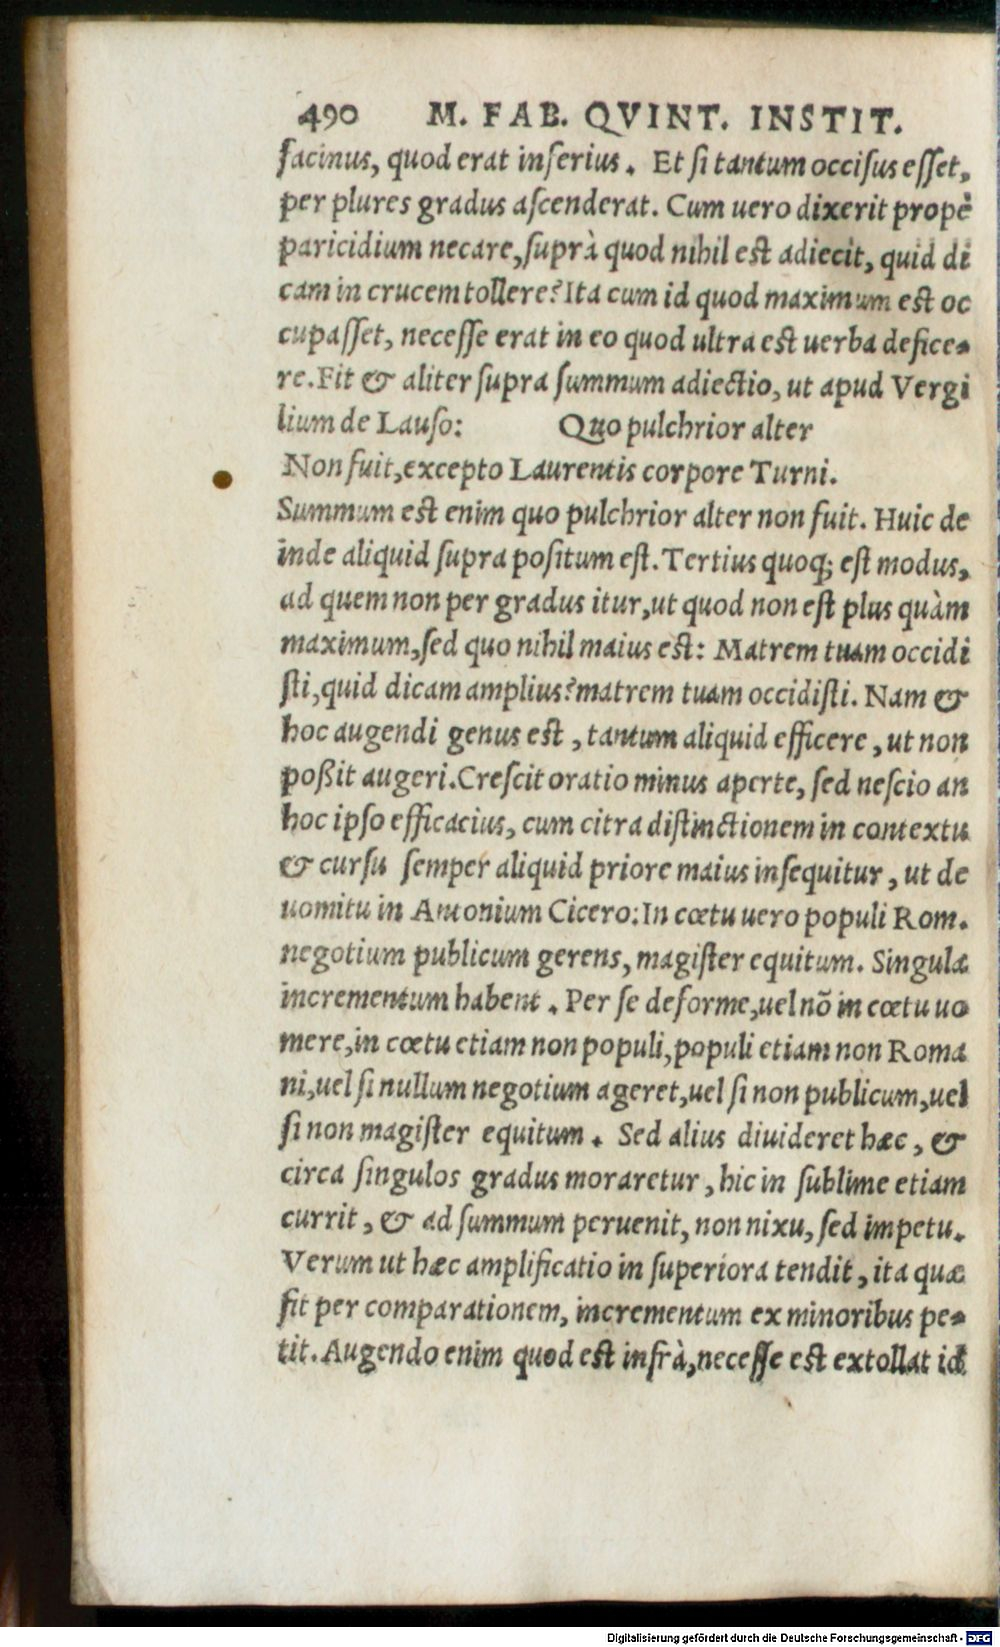 490 M. FAB. QVINT. INSTIT.
facinus, quod erat inferius. Et si tantum occisus esset,
per plures gradus ascenderat. Cum uero dixerit propè
paricidium necare, suprà quod nihil est adiecit, quid di
cam in crucem tollere? Ita cum id quod maximum est oc
cupasset, necesse erat in eo quod ultra est uerba defice-
re. Fit & aliter supra summum adiectio, ut apud Vergi
lium de Lauso: Quo pulchrior alter
Non fuit, excepto Laurentis corpore Turni.
Summum est enim quo pulchrior alter non fuit. Huic de
inde aliquid supra positum est. Tertius quoq; est modus,
ad quem non per gradus itur, ut quod non est plus quàm
maximum, sed quo nihil maius est: Matrem tuam occidi
sti, quid dicam amplius? matrem tuam occidisti. Nam &
hoc augendi genus est, tantum aliquid efficere, ut non
poßit augeri. Crescit oratio minus aperte, sed nescio an
hoc ipso efficacius, cum citra distinctionem in contextu
& cursu semper aliquid priore maius insequitur, ut de
uomitu in Antonium Cicero: In cœtu uero populi Rom.
negotium publicum gerens, magister equitum. Singula
incrementum habent. Per se deforme, uel nõ in cœtu uo
mere, in cœtu etiam non populi, populi etiam non Roma
ni, uel si nullum negotium ageret, uel si non publicum, uel
si non magister equitum. Sed alius diuideret hæc, &
circa singulos gradus moraretur, hic in sublime etiam
currit, & ad summum peruenit, non nixu, sed impetu.
Verum ut hæc amplificatio in superiora tendit, ita quæ
fit per comparationem, incrementum ex minoribus pe-
tit. Augendo enim quod est infrà, necesse est extollat id
Digitalisierung gefördert durch die Deutsche Forschungsgemeinschaft - DFG